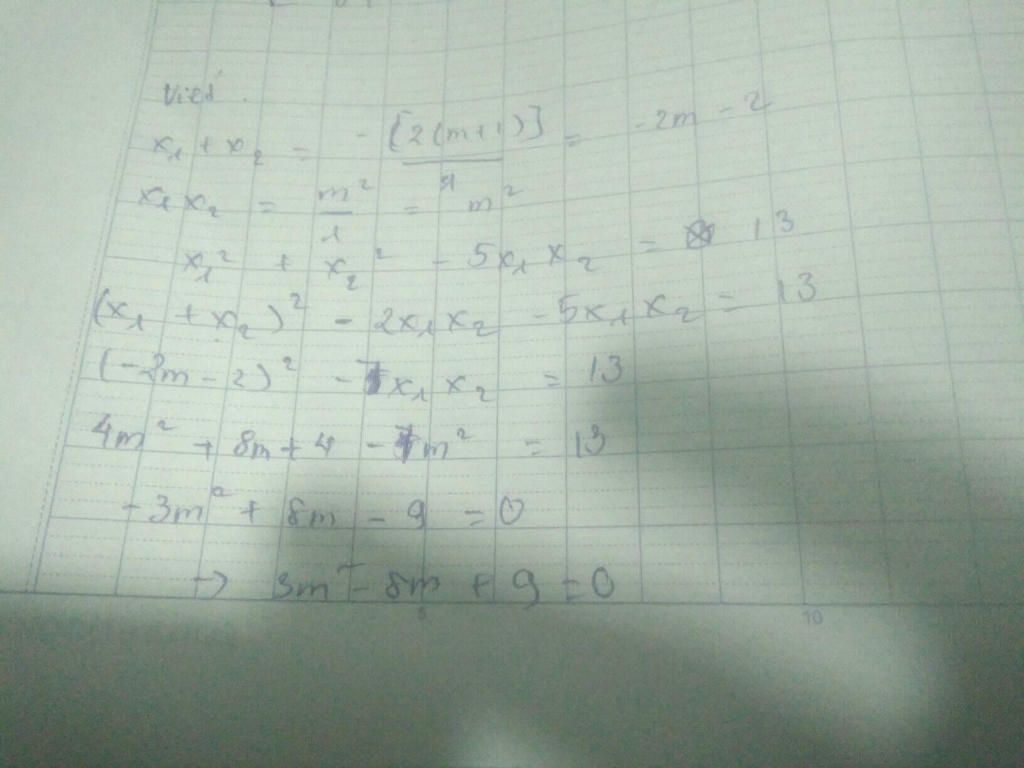 Viet.
x₁ + x₂ = -[2(m+1)] / 1 = -2m - 2
x₁x₂ = m² / 1 = m²
x₁² + x₂² - 5x₁x₂ = 13
(x₁ + x₂)² - 2x₁x₂ - 5x₁x₂ = 13
(-2m - 2)² - 7x₁x₂ = 13
4m² + 8m + 4 - 7m² = 13
-3m² + 8m - 9 = 0
→ 3m² - 8m + 9 = 0
10